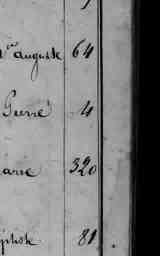 auguste 64
Pierre 4
arie 320
ptiste 81